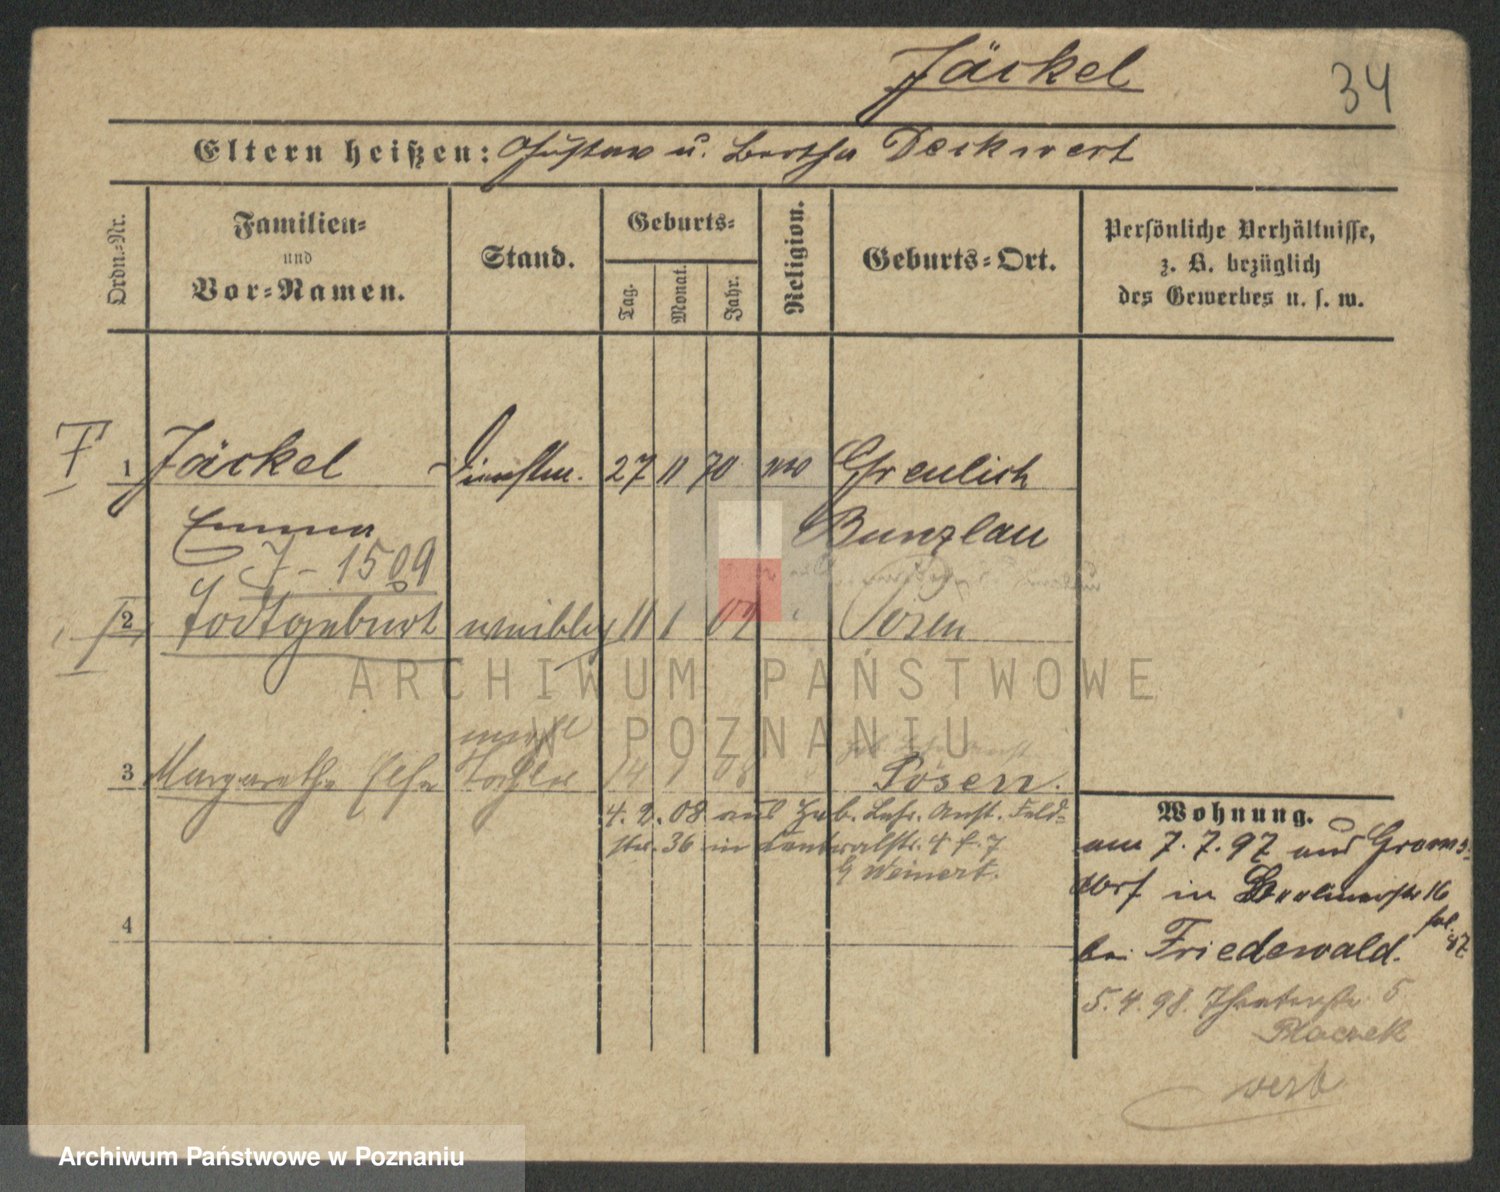 Jäckel
34
Eltern heißen: Gustav u. Bertha Deckwert
Ordn.-Nr.
Familien-
und
Vor-Namen.
Stand.
Geburts-
Tag.
Monat.
Jahr.
Religion.
Geburts-Ort.
Persönliche Verhältnisse,
z. B. bezüglich
des Gewerbes u. s. w.
1 Jäckel 27 11 70 Greulich
Emma Bunzlau
J - 1509
2 Todtgeburt weiblich 11 1 09 Posen
3 Margarethe Elsa Tochter 14 1 08 Posen.
4. 2. 08 aus Heb. Lehr. Anst. Feld-
str. 36 in Centralstr. 4
Weinert.
4
Wohnung.
am 7. 7. 97 aus Grams-
dorf in Berlinerstr 16
bei Friedewald.
5. 4. 98. Theaterstr. 5
Placzek
ARCHIWUM PAŃSTWOWE
W POZNANIU
Archiwum Państwowe w Poznaniu